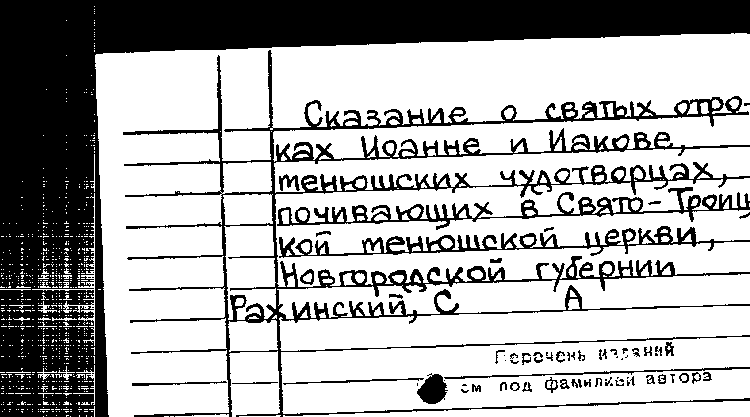 Сказание о святых отро-
ках Иоанне и Иакове,
тенюшских чудотворцах,
почивающих в Свято-Троиц
кой тенюшской церкви,
Новгородской губернии
Рахинский, С А
Перечень изданий
см под фамилией автора